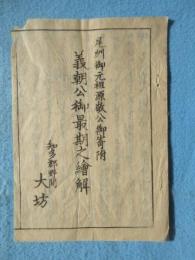 尾州御元祖源敬公御寄附
義朝公御最期之繪解
知多郡野間
大坊